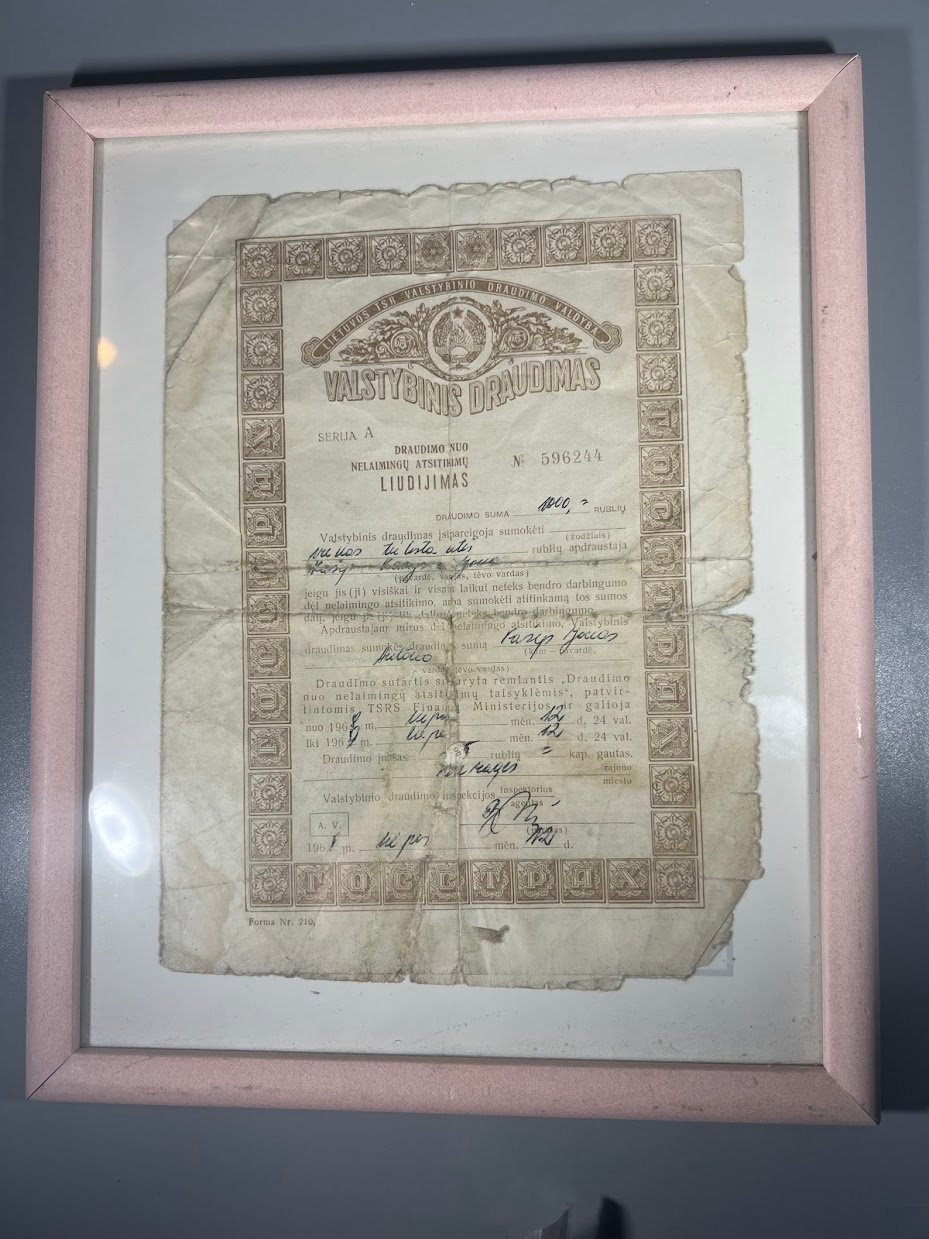 LIETUVOS TSR VALSTYBINIO DRAUDIMO VALDYBA
VALSTYBINIS DRAUDIMAS
SERIJA A
DRAUDIMO NUO
NELAIMINGŲ ATSITIKIMŲ
LIUDIJIMAS
№ 596244
DRAUDIMO SUMA 1000,= RUBLIŲ
Valstybinis draudimas įsipareigoja sumokėti
(žodžiais)
vienas tūkstantis rublių apdraustajam
(pavardė, vardas, tėvo vardas)
jeigu jis (ji) visiškai ir visam laikui neteks bendro darbingumo
dėl nelaimingo atsitikimo, arba sumokėti atitinkamą tos sumos
dalį, jeigu jis (ji) tik dalinai neteks bendro darbingumo.
Apdraustajam mirus dėl nelaimingo atsitikimo, Valstybinis
draudimas sumokės draudimo sumą Jonas
(kam — pavardė,
Antano
vardas, tėvo vardas)
Draudimo sutartis sudaryta remiantis „Draudimo
nuo nelaimingų atsitikimų taisyklėmis", patvir-
tintomis TSRS Finansų Ministerijos ir galioja
nuo 196 m. liepos mėn. 12 d. 24 val.
iki 196 m. liepos mėn. 12 d. 24 val.
Draudimo įnašas rublių = kap. gautas.
Tauragės rajono
miesto
Valstybinio draudimo inspekcijos inspektorius
agentas
(parašas)
A. V.
196 m. liepos mėn. 12 d.
ГОССТРАХ
ГОССТРАХ
ГОССТРАХ
Forma Nr. 210.